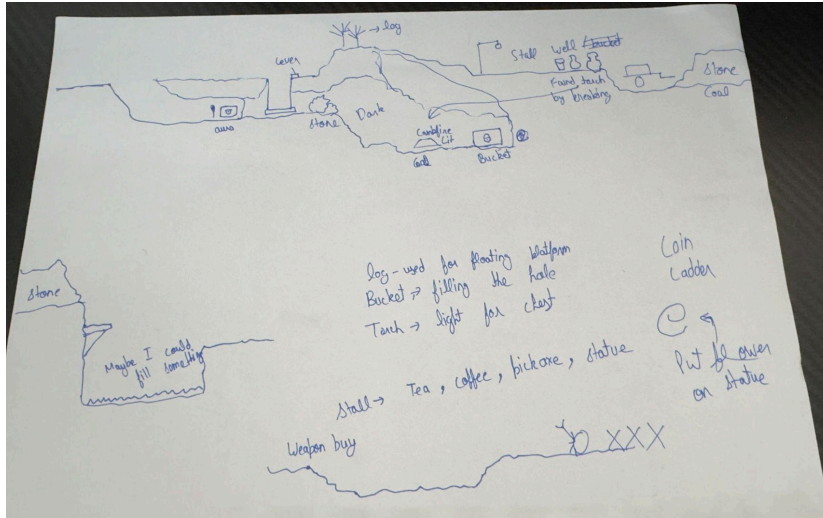 log
Lever
Stall
well
Stone
Coal
Found torch
by breaking
Stone
Dark
Campfire
Lit
Coal
Bucket
Stone
Maybe I could
fill something
log - used for floating platform
Bucket → filling the hole
Torch → light for chest
Coin
Ladder
Put flower
on statue
Stall → Tea, coffee, pickaxe, statue
Weapon buy
XXX